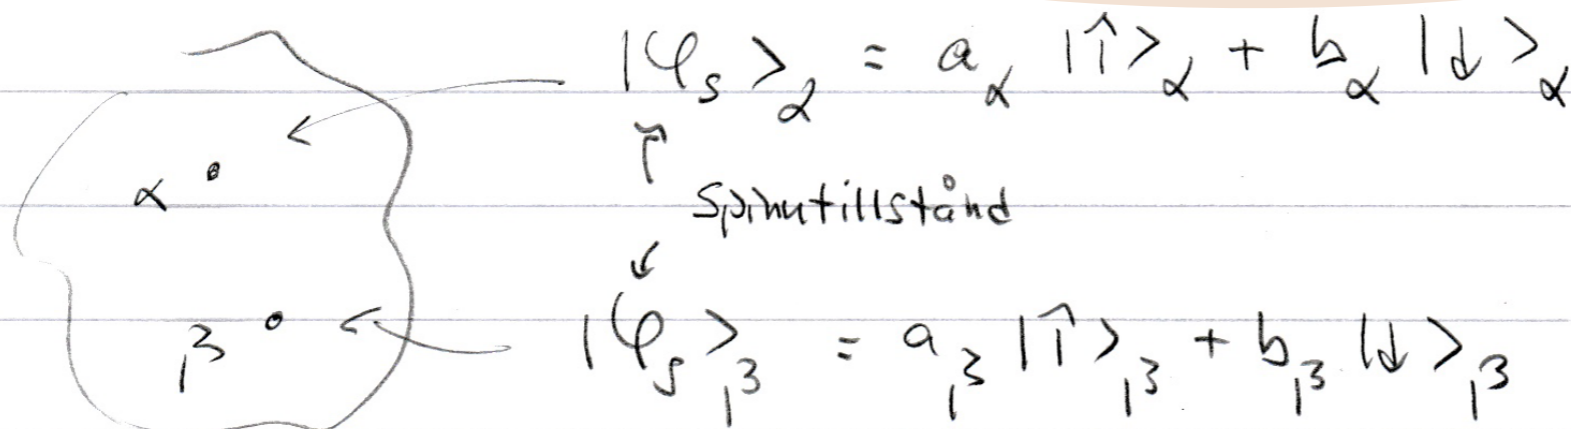 |φ_s>_α = a_α |↑>_α + b_α |↓>_α
↑
α
Spinntillstånd
↓
β
|φ_s>_β = a_β |↑>_β + b_β |↓>_β